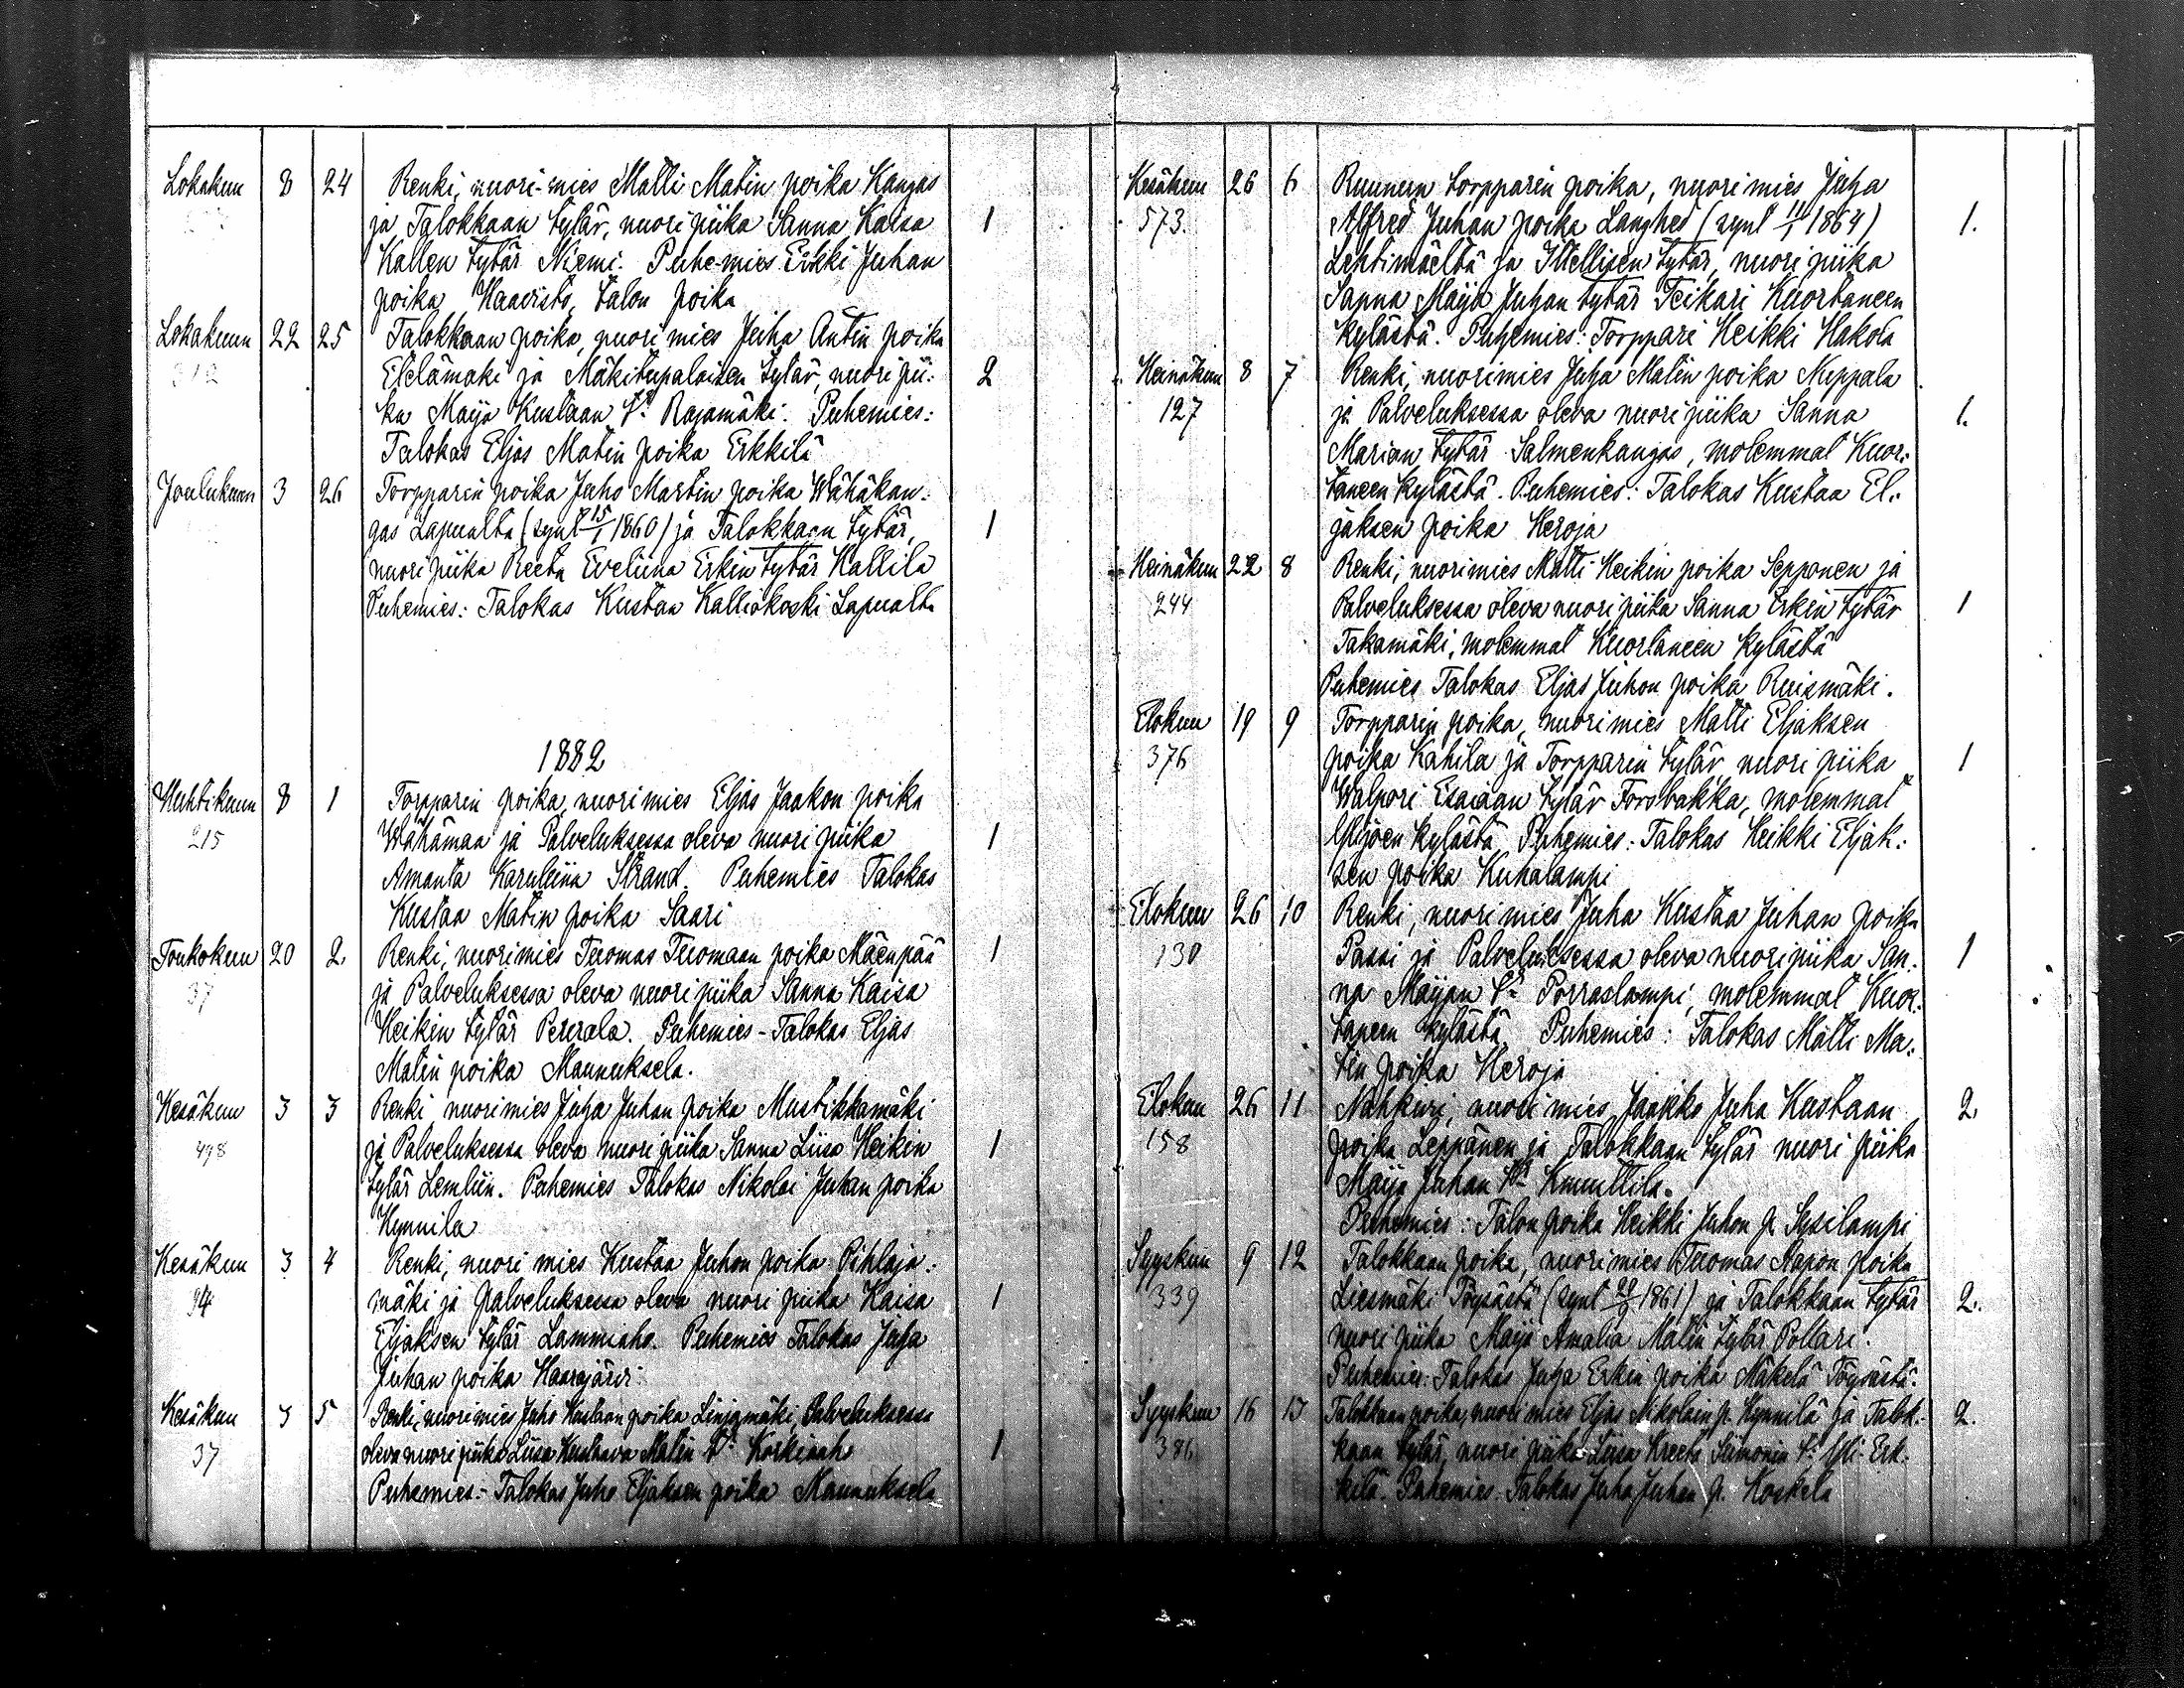 Lokakuun 8 24 Renki, nuori-mies Matti Matin poika Kangas
ja Talokkaan tytär, nuori piika Sanna Kaisa 1
Kallen tytär Niemi. Puhe-mies Erkki Juhan
poika Haavisto, talon poika
Lokakuun 22 25 Talokkaan poika, nuori mies Juha Antin poika
312 Etelämäki ja Mäkitupalaisen tytär, nuori pii- 2
ka Maija Kustaan tr Rajamäki. Puhemies:
Talokas Eljas Matin poika Erkkilä
Joulukuun 3 26 Torpparin poika Juho Martin poika Wähäkan-
gas Lapualta (synt 15/1 1860) ja Talokkaan tytär, 1
nuori piika Reeta Eveliina Erkin tytär Kallila
Puhemies: Talokas Kustaa Kalliokoski Lapualta
1882
Huhtikuun 8 1 Torpparin poika, nuori mies Eljas Jaakon poika
215 Wähämaa ja Palveluksessa oleva nuori piika 1
Amanta Karuliina Strand. Puhemies Talokas
Kustaa Matin poika Saari
Toukokuun 20 2. Renki, nuori mies Tuomas Tuomaan poika Mäenpää 1
37 ja Palveluksessa oleva nuori piika Sanna Kaisa
Heikin tytär Pererala. Puhemies - Talokas Eljas
Matin poika Mannuksela.
Kesäkuun 3 3 Renki nuori mies Juha Juhan poika Mustikkamäki
498 ja Palveluksessa oleva nuori piika Sanna Liisa Heikin 1
tytär Lemliin. Puhemies Talokas Nikolai Juhan poika
Hynnila
Kesäkuun 3 4 Renki, nuori mies Kustaa Juhon poika Pihlaja-
94 mäki ja palveluksessa oleva nuori piika Kaisa 1
Eljaksen tytär Lammiaho. Puhemies Talokas Juha
Juhan poika Haarajärvi
Kesäkuun 3 5 Renki, nuori mies Juho Kustaan poika Linjamäki, Palveluksessa
37 oleva nuori piika Liisa Kustaava Matin tr Korkiaaho 1
Puhemies - Talokas Juho Eljaksen poika Mannuksela
Kesäkuun 26 6 Ruunun torpparin poika, nuori mies Juha
573. Alfred Juhan poika Langhed (synt 11/1 1864) 1.
Lehtimäeltä ja Itsellisen tytär, nuori piika
Sanna Maija Juhan tytär Teikari Kuortaneen
kylästä. Puhemies: Torppari Heikki Hakola
Heinäkuun 8 7 Renki, nuorimies Juha Matin poika Nuppala
127 ja Palveluksessa oleva nuori piika Sanna 1.
Marian tytär Salmenkangas, molemmat Kuor-
taneen kylästä. Puhemies: Talokas Kustaa El-
jaksen poika Heroja
Heinäkuun 22 8 Renki, nuorimies Matti Heikin poika Sepponen ja
244 Palveluksessa oleva nuori piika Sanna Erkin tytär 1
Takamäki, molemmat Kuortaneen kylästä
Puhemies Talokas Eljas Juhon poika Ruismäki.
Elokuun 19 9 Torpparin poika, nuorimies Matti Eljaksen
376 poika Kahila ja Torpparin tytär, nuori piika 1
Walpori Esaiaan tytär Forsbakka, molemmat
Ylijoen kylästä Puhemies: Talokas Heikki Eljak-
sen poika Kuhalampi
Elokuun 26 10 Renki, nuori mies Juha Kustaa Juhan poika
130 Passi ja Palveluksessa oleva nuori piika San- 1
na Maijan tr Porraslampi, molemmat Kuor-
taneen kylästä. Puhemies: Talokas Matti Ma-
tin poika Heroja
Elokuun 26 11 Nahkuri, nuori mies Jaakko Juha Kustaan 2
158 poika Leppänen ja Talokkaan tytär nuori piika
Maija Juhan tr Knuuttila.
Puhemies: Talon poika Heikki Juhon p. Sysilampi
Syyskuun 9 12 Talokkaan poika, nuorimies Tuomas Aapon poika
339 Liesmäki Töysästä (synt 1861) ja Talokkaan tytär 2.
nuori piika Maija Amalia Matin tytär Pollari.
Puhemies: Talokas Juha Erkin poika Mäkelä Töysästä.
Syyskuun 16 13 Talokkaan poika, nuori mies Eljas Nikolain p. Hynnilä ja Talok- 2.
386 kaan tytär, nuori piika Liisa Kreeta Siimonin tr Yli-Erk-
kilä. Puhemies: Talokas Juha Juhan p. Koskela